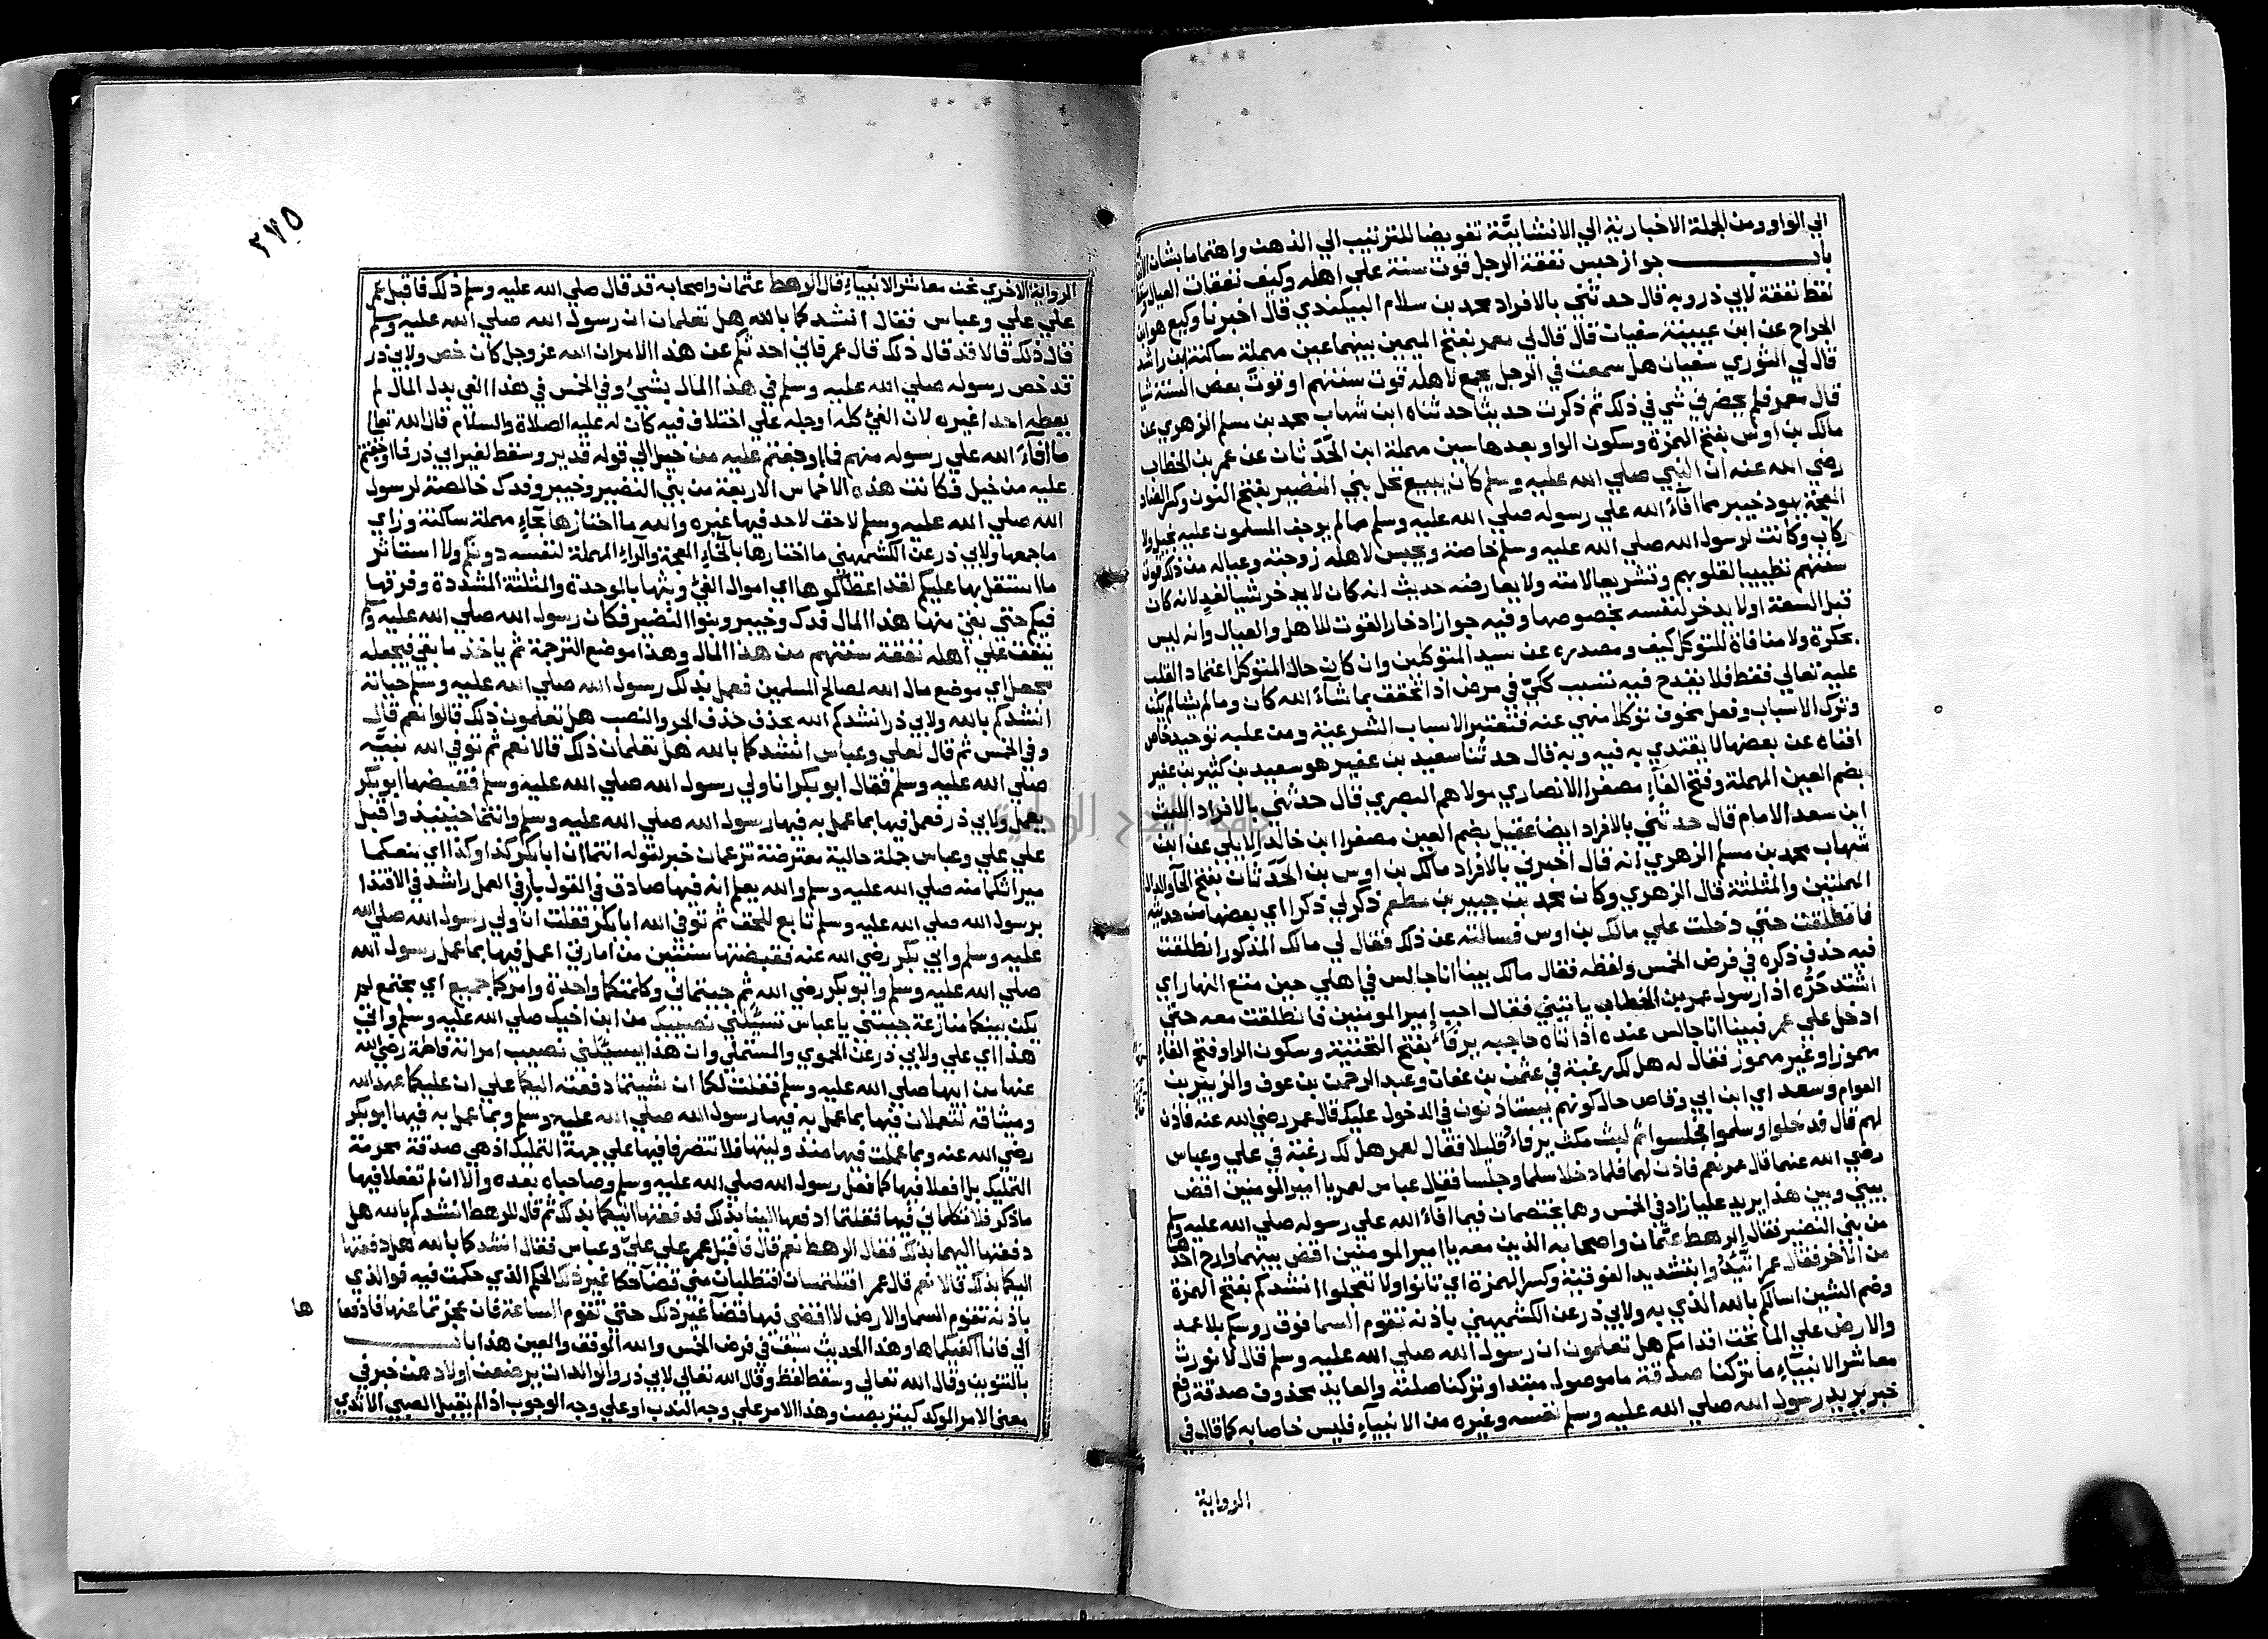 الي الواو ومن الجملة الاخبارية الي الانشائيَّة تفويضا للترتيب الي الذهن واهتماما بشان
باب جواز حبس نفقة الرجل قوت سنة علي اهله وكيف نفقات العيال
لفظ نفقة لابي ذر وبه قال حدثني بالافراد محمد بن سلام البيكندي قال اخبرنا وكيع هو ابن
الجراح عن ابن عيينة سفيان قال قال لي معمر بفتح الميمين بينهما عين مهملة ساكنة ابن راشد
قال لي الثوري سفيان هل سمعت في الرجل يجمع لاهله قوت سنتهم او قوت بعض السنة شيا
قال معمر فلم يحضرني شي في ذلك ثم ذكرت حديثا حدثناه ابن شهاب محمد بن مسلم الزهري عن
مالك بن اوس بفتح الهمزة وسكون الواو بعدها سين مهملة ابن الحَدَثان عن عمر بن الخطاب
رضي الله عنه ان النبي صلي الله عليه وسلم كان يبيع نخل بني النضير بفتح النون وكسر الضاد
المعجمة يهود خيبر مما افآءَ الله علي رسوله صلي الله عليه وسلم مما لم يوجف المسلمون عليه بخيل ولا
ركاب وكانت لرسول الله صلي الله عليه وسلم خاصة ويحبس لاهله زوجته وعياله من ذلك قوت
سنتهم تطييبا لقلوبهم وتشريعا لامته ولا يعارضه حديث انه كان لا يدخر شيا لغدٍ لانه كان
قبل السعة اولا يدخر لنفسه بخصوصها وفيه جواز ادخار القوت للاهل والعيال وانه ليس
بحكرة ولا منافاة للتوكل كيف ومصدره عن سيد المتوكلين وان كان حال المتوكل اعتماد القلب
عليه تعالي فقط فلا يقدح فيه تسبب كيّ في مرض اذا تحقق بما شآءَ الله كان وما لم يشا لم يكن
وترك الاسباب وفعل مخوف توكلا منهي عنه فتعتبر الاسباب الشرعية ومن عليه توحيد خاص
افناه عن بعضها لا يقتدي به فيه وبه قال حدثنا سعيد بن عفير هو سعيد بن كثير بن عفير
بضم العين المهملة وفتح الفآءِ مصغرا الانصاري مولاهم البصري قال حدثني بالافراد الليث
ابن سعد الامام قال حدثني بالافراد ايضا عقيل بضم العين مصغرا ابن خالد الايلي عن ابن
شهاب محمد بن مسلم الزهري انه قال اخبرني بالافراد مالك بن اوس بن الحَدَثان بفتح الحآء والدال
المهملتين والمثلثة قال الزهري وكان محمد بن جبير بن مطعم ذكر لي ذكرا اي بعضها من حديثه
فانطلقت حتي دخلت علي مالك بن اوس فسالته عن ذلك فقال لي مالك المذكور انطلقت
فيه حذف ذكره في فرض الخمس ولفظه فقال مالك بينا انا جالس في اهلي حين متع النهار اي
اشتد حَرُّه اذا رسول عمر بن الخطاب ياتيني فقال اجب امير المومنين فانطلقت معه حتي
ادخل علي عمر فبينا انا جالس عنده اذ اتاه حاجبه يرفآءُ بفتح التحتية وسكون الرا وفتح الفاءِ
مهموزا وغير مهموز فقال له هل لك رغبة في عثمن بن عفان وعبد الرحمن بن عوف والزبير بن
العوام وسعد اي ابن ابي وقاص حال كونهم يستاذنون في الدخول عليك قال عمر رضي الله عنه فاذن
لهم قال فدخلوا وسلموا فجلسوا ثم لبث مكث يرفاءُ قليلا فقال لعمر هل لك رغبة في علي وعباس
رضي الله عنهما قال عمر نعم فاذن لهما فلما دخلا سلما وجلسا فقال عباس لعمر يا امير المومنين اقض
بيني وبين هذا يريد عليا زاد في الخمس وهما يختصمان فيما افآءَ الله علي رسوله صلي الله عليه وسلم
من بني النضير فقال الرهط عثمان واصحابه الذين معه يا امير المومنين اقض بينهما وارح احدهما
من الآخر فقال عمر اتَّئِدُوا بتشديد الفوقية وكسر الهمزة اي تانوا ولا تعجلوا انشدكم بفتح الهمزة
وضم الشين اسالكم بالله الذي به ولابي ذر عن الكشميهني باذنه تقوم السما فوق روسكم بلا عمد
والارض علي الما تحت اقدامكم هل تعلمون ان رسول الله صلي الله عليه وسلم قال لا نورث
معاشر الانبيآءِ ما تركنا صدقة ما موصول مبتدا وتركنا صلته والعايد محذوف صدقة رفع
خبر يريد رسول الله صلي الله عليه وسلم نفسه وغيره من الانبيآءِ فليس خاصا به كما قال في
الرواية
٢٧٥
الرواية الاخري نحن معاشر الانبياءِ قال الرهط عثمان واصحابه قد قال صلي الله عليه وسلم ذلك فاقبل عمر
علي علي وعباس فقال انشدكما بالله هل تعلمان ان رسول الله صلي الله عليه وسلم
قال ذلك قالا قد قال ذلك قال عمر فاني احدثكم عن هذا الامر ان الله عز وجل كان خص ولابي ذر
قد خص رسوله صلي الله عليه وسلم في هذا المال بشيءٍ وفي الخمس في هذا الفي بدل المال لم
يعطه احدا غيره لان الفيَ كله او جله علي اختلاف فيه كان له عليه الصلاة والسلام قال الله تعالي
ما افآءَ الله علي رسوله منهم فما اوجفتم عليه من خيل الي قوله قدير وسقط لغير ابي ذر فما اوجفتم
عليه من خيل فكانت هذه الاخماس الاربعة من بني النضير وخيبر وفدك خالصة لرسول
الله صلي الله عليه وسلم لا حق لاحد فيها غيره والله ما احتازها بحآءٍ مهملة ساكنة وزاي
ما جمعها ولابي ذر عن الكشميهني ما اختارها بالخآءِ المعجمة والرآءِ المهملة لنفسه دونكم ولا استاثر
ما استقل بها عليكم لقد اعطاكموها اي اموال الفيَ وبثها بالموحدة والمثلثة المشددة وفرقها
فيكم حتي بقي منها هذا المال فدك وخيبر وبنوا النضير فكان رسول الله صلي الله عليه وسلم
ينفق علي اهله نفقة سنتهم من هذا المال وهذا موضع الترجمة ثم ياخذ ما بقي فيجعله
مجعل اي موضع مال الله لمصالح المسلمين فعمل بذلك رسول الله صلي الله عليه وسلم حياته
انشدكم بالله ولابي ذر انشدكم الله بحذف حذف الجر والنصب هل تعلمون ذلك قالوا نعم قال
وفي الخمس ثم قال لعلي وعباس انشدكما بالله هل تعلمان ذلك قالا نعم ثم توفي الله نبيَّه
صلي الله عليه وسلم فقال ابو بكر انا ولي رسول الله صلي الله عليه وسلم فقبضها ابو بكر
يعمل ولابي ذر فعمل فيها بما عمل به فيها رسول الله صلي الله عليه وسلم وانتما حينيذ واقبل
علي علي وعباس جملة حالية معترضة تزعمان خبر لقوله انتما ان ابا بكر كذا وكذا اي منعكما
ميراثكما منه صلي الله عليه وسلم والله يعلم انه فيها صادق في القول بار في العمل راشد في الاقتدا
برسول الله صلي الله عليه وسلم تابع للحق ثم توفي الله ابا بكر فقلت انا ولي رسول الله صلي الله
عليه وسلم وابي بكر رضي الله عنه فقبضتها سنتين من امارتي اعمل فيها بما عمل رسول الله
صلي الله عليه وسلم وابو بكر رضي الله ثم جيتماني وكلمتكما واحدة وامركما جميع اي مجتمع لم
يكن بينكما منازعة جيتني يا عباس تسئَلني نصيبك من ابن اخيك صلي الله عليه وسلم واتي
هذا اي علي ولابي ذر عن الحموي والمستملي وان هذا يسئَلني نصيب امراته فاطمة رضي الله
عنها من ابيها صلي الله عليه وسلم فقلت لكما ان شيتما دفعته اليكما علي ان عليكما عهد الله
وميثاقه لتعملان فيها بما عمل به فيها رسول الله صلي الله عليه وسلم وبما عمل به فيها ابو بكر
رضي الله عنه وبما عملت فيها منذ وليتها فلا تتصرفا فيها علي جهة التمليك اذ هي صدقة محرمة
التمليك بل افعلا فيها كما فعل رسول الله صلي الله عليه وسلم وصاحباه بعده والا ان لم تفعلا فيها
ما ذكر فلا تكلماني فيها فقلتما ادفعها الينا بذلك فدفعتها اليكما بذلك ثم قال للرهط انشدكم بالله هل
دفعتها اليهما بذلك فقال الرهط نعم قال فاقبل عمر علي عليّ وعباس فقال انشدكما بالله هل دفعتها
اليكما بذلك قالا نعم قال عمر افتلتمسان افتطلبان مني قضآءً فكما غير ذلك الحكم الذي حكمت فيه فوالذي
باذنه تقوم السما والارض لا اقضي فيها قضآءً غير ذلك حتي تقوم الساعة فان عجزتما عنها فادفعا ها
الي فانا اكفيكماها وهذا الحديث سبق في فرض الخمس والله الموفق والمعين هذا باب
بالتنوين وقال الله تعالي وسقط لفظ وقال الله تعالي لابي ذر والوالدات يرضعن اولادهن خبر في
معني الامر الموكد كيتربصن وهذا الامر علي وجه الندب او علي وجه الوجوب اذا لم يقبل الصبي الا ثدي